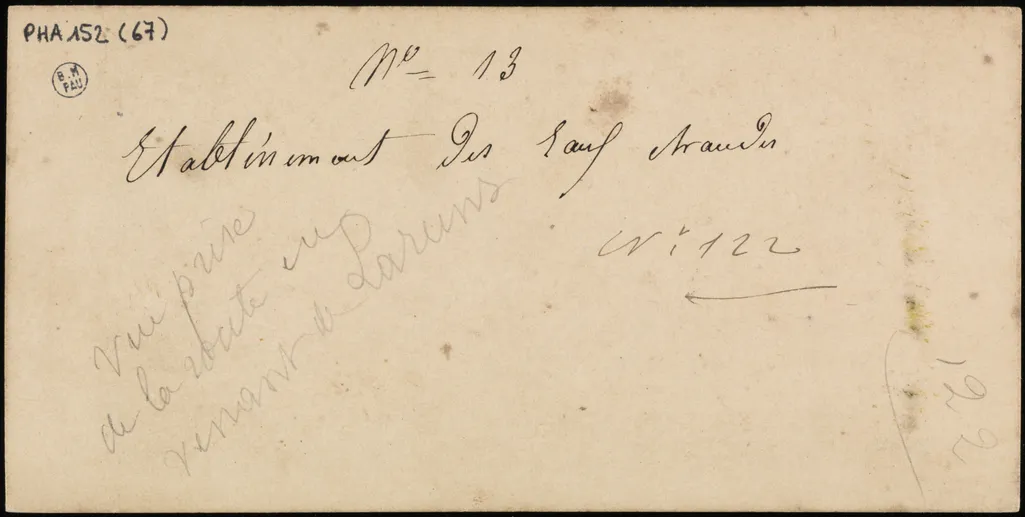 PHA 152 (67)
B.M
PAU
No= 13
Etablissement des Eaux chaudes
No 122
vue prise
de la route en
venant de Laruns
122